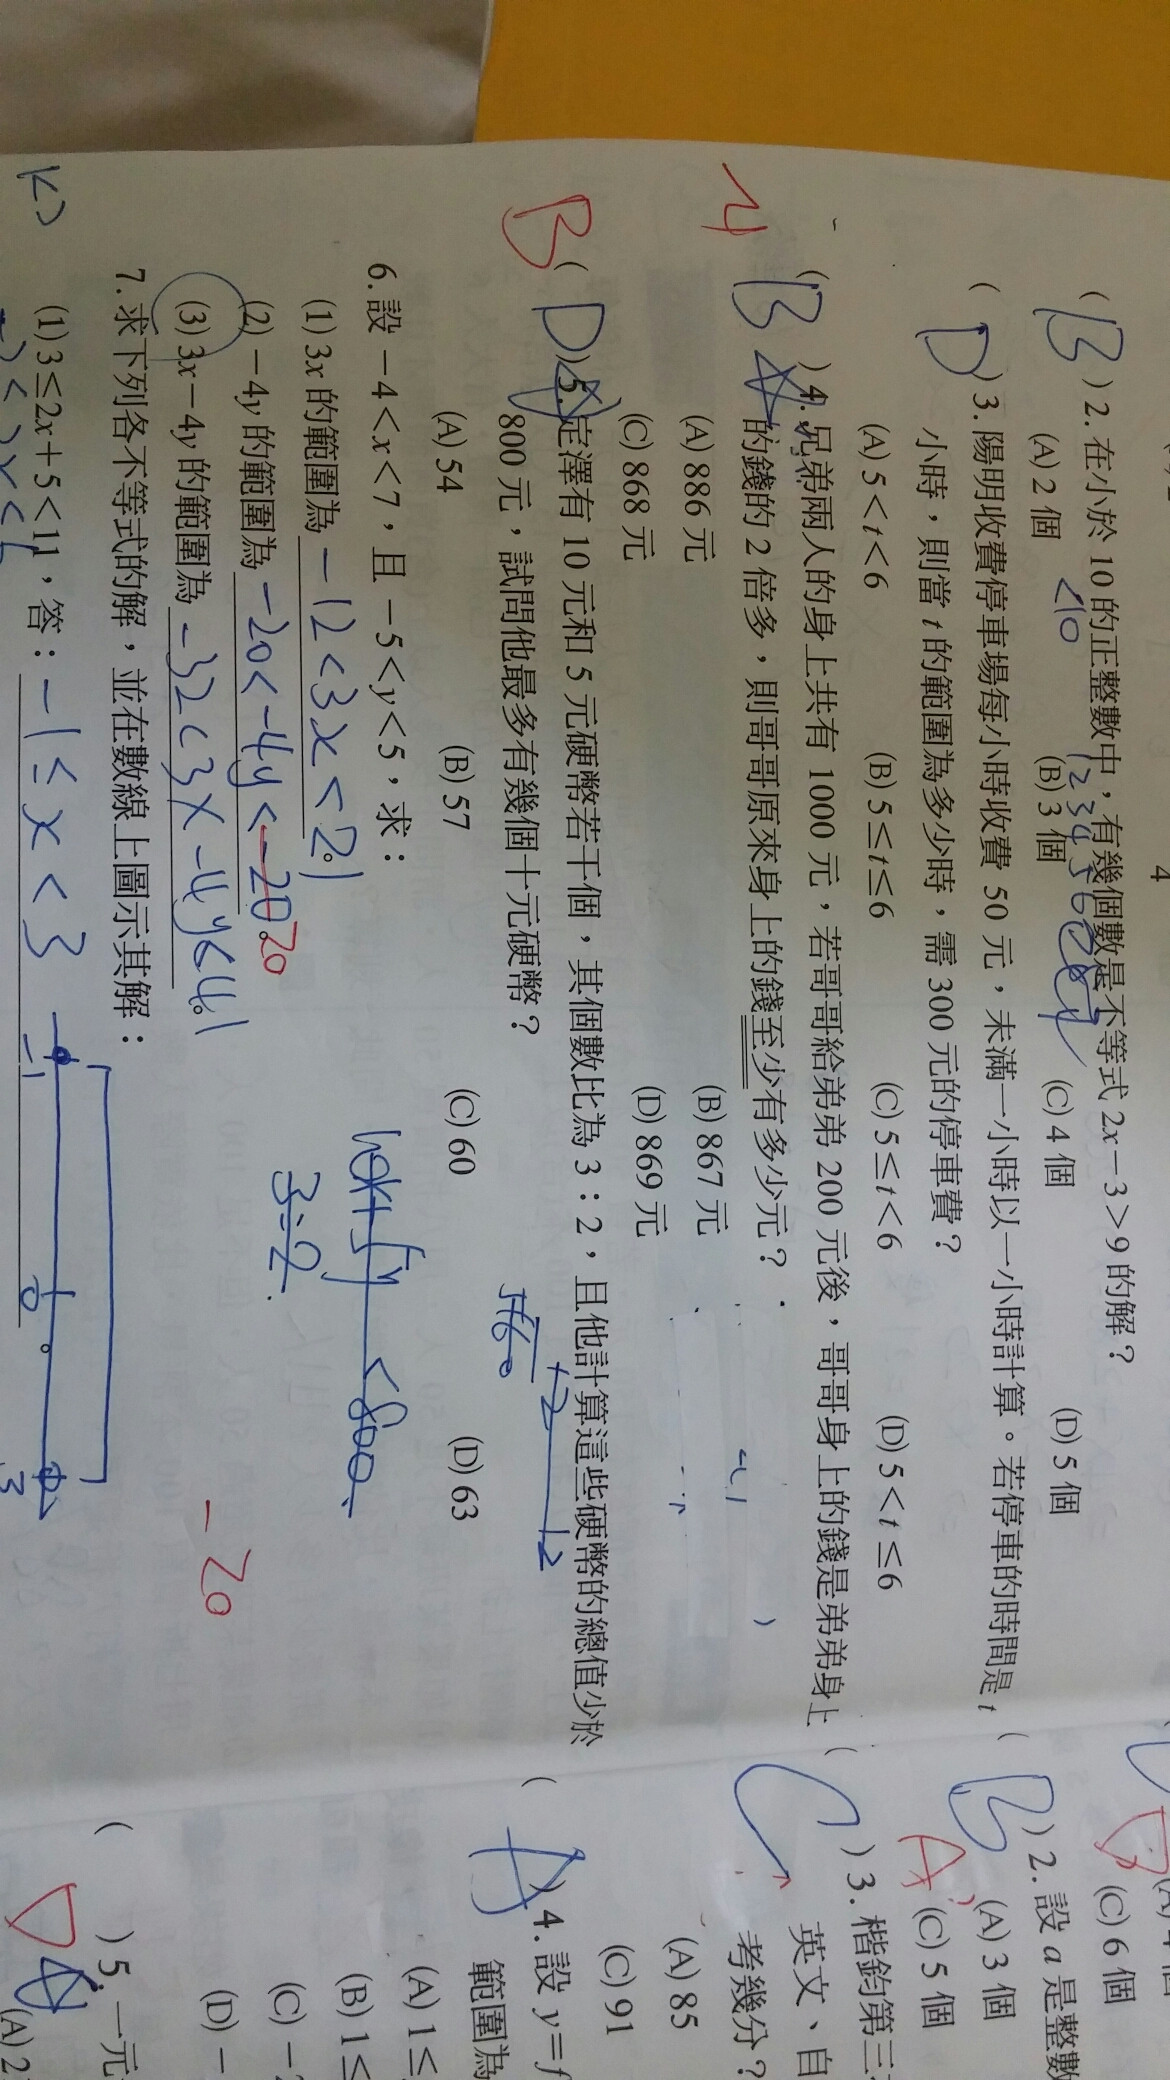 (B) 2. 在小於 10 的正整數中，有幾個數是不等式 2x－3＞9 的解？
<10
(A) 2 個 (B) 3 個 (C) 4 個 (D) 5 個
(D) 3. 陽明收費停車場每小時收費 50 元，未滿一小時以一小時計算。若停車的時間是 t
小時，則當 t 的範圍為多少時，需 300 元的停車費？
(A) 5＜t＜6 (B) 5≤t≤6 (C) 5≤t＜6 (D) 5＜t≤6
(B) 4. 兄弟兩人的身上共有 1000 元，若哥哥給弟弟 200 元後，哥哥身上的錢是弟弟身上
的錢的 2 倍多，則哥哥原來身上的錢至少有多少元？
(A) 886 元 (B) 867 元
(C) 868 元 (D) 869 元
B
(D) 5. 定澤有 10 元和 5 元硬幣若干個，其個數比為 3：2，且他計算這些硬幣的總值少於
800 元，試問他最多有幾個十元硬幣？
(A) 54 (B) 57 (C) 60 (D) 63
10x+5y<800
3=2
6. 設 －4＜x＜7，且 －5＜y＜5，求：
(1) 3x 的範圍為 -12<3x<21
(2) －4y 的範圍為 -20<-4y<-20 20
(3) 3x－4y 的範圍為 -32<3x-4y<41
-20
7. 求下列各不等式的解，並在數線上圖示其解：
(1) 3≤2x＋5＜11，答： -1≤x<3
-1 0 3
(C) 6 個
(B) 2. 設 a 是整數
A
(A) 3 個
(C) 5 個
(C) 3. 楷鈞第三
英文、自
考幾分？
(A) 85
(C) 91
(A) 4. 設 y＝f
範圍為
(A) 1≤
(B) 1≤
(C) －
(D) －
( ) 5. 一元
(A) 2